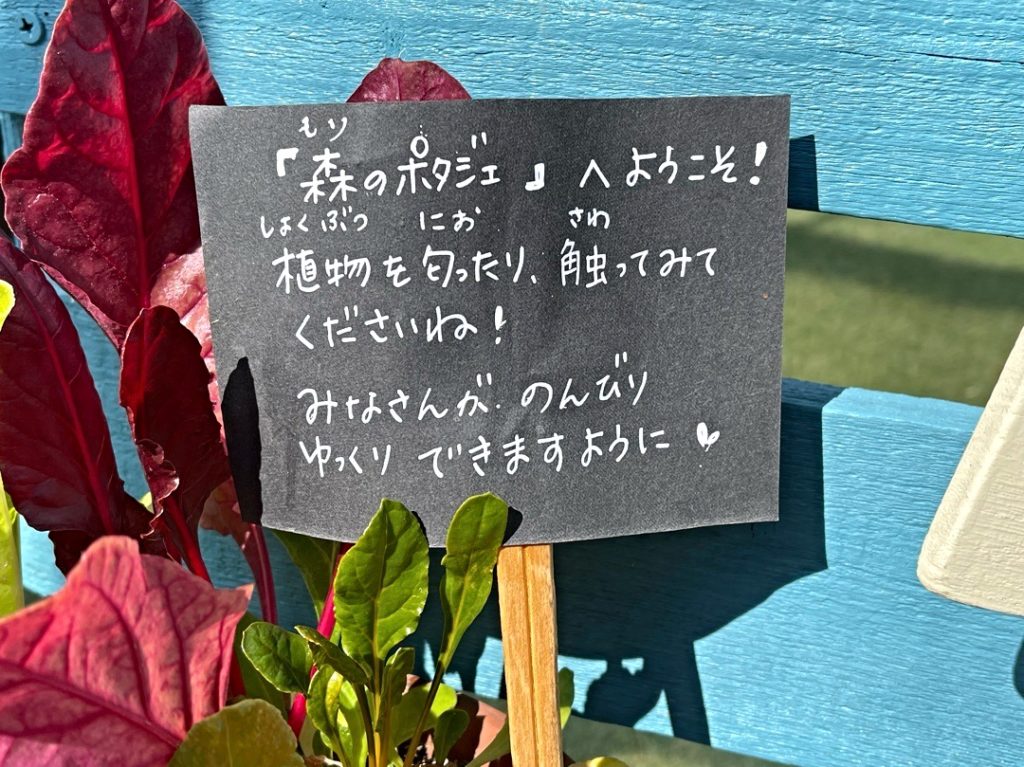 もり
『森のポタジェ』へようこそ!
しょくぶつ にお さわ
植物を匂ったり、触ってみて
くださいね!
みなさんが のんびり
ゆっくり できますように♥